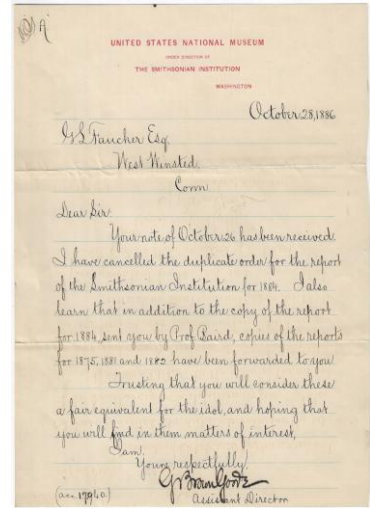 A
UNITED STATES NATIONAL MUSEUM
UNDER DIRECTION OF
THE SMITHSONIAN INSTITUTION
WASHINGTON
October 28, 1886
G S Faucher Esq.
West Winsted.
Conn
Dear Sir.
Your note of October 26 has been received.
I have cancelled the duplicate order for the report
of the Smithsonian Institution for 1884. I also
learn that in addition to the copy of the report
for 1884, sent you by Prof Baird, copies of the reports
for 1875, 1881 and 1882 have been forwarded to you
Trusting that you will consider these
a fair equivalent for the idol, and hoping that
you will find in them matters of interest,
I am.
Yours respectfully.
G Brown Goode
Assistant Director
(acc. 17940)